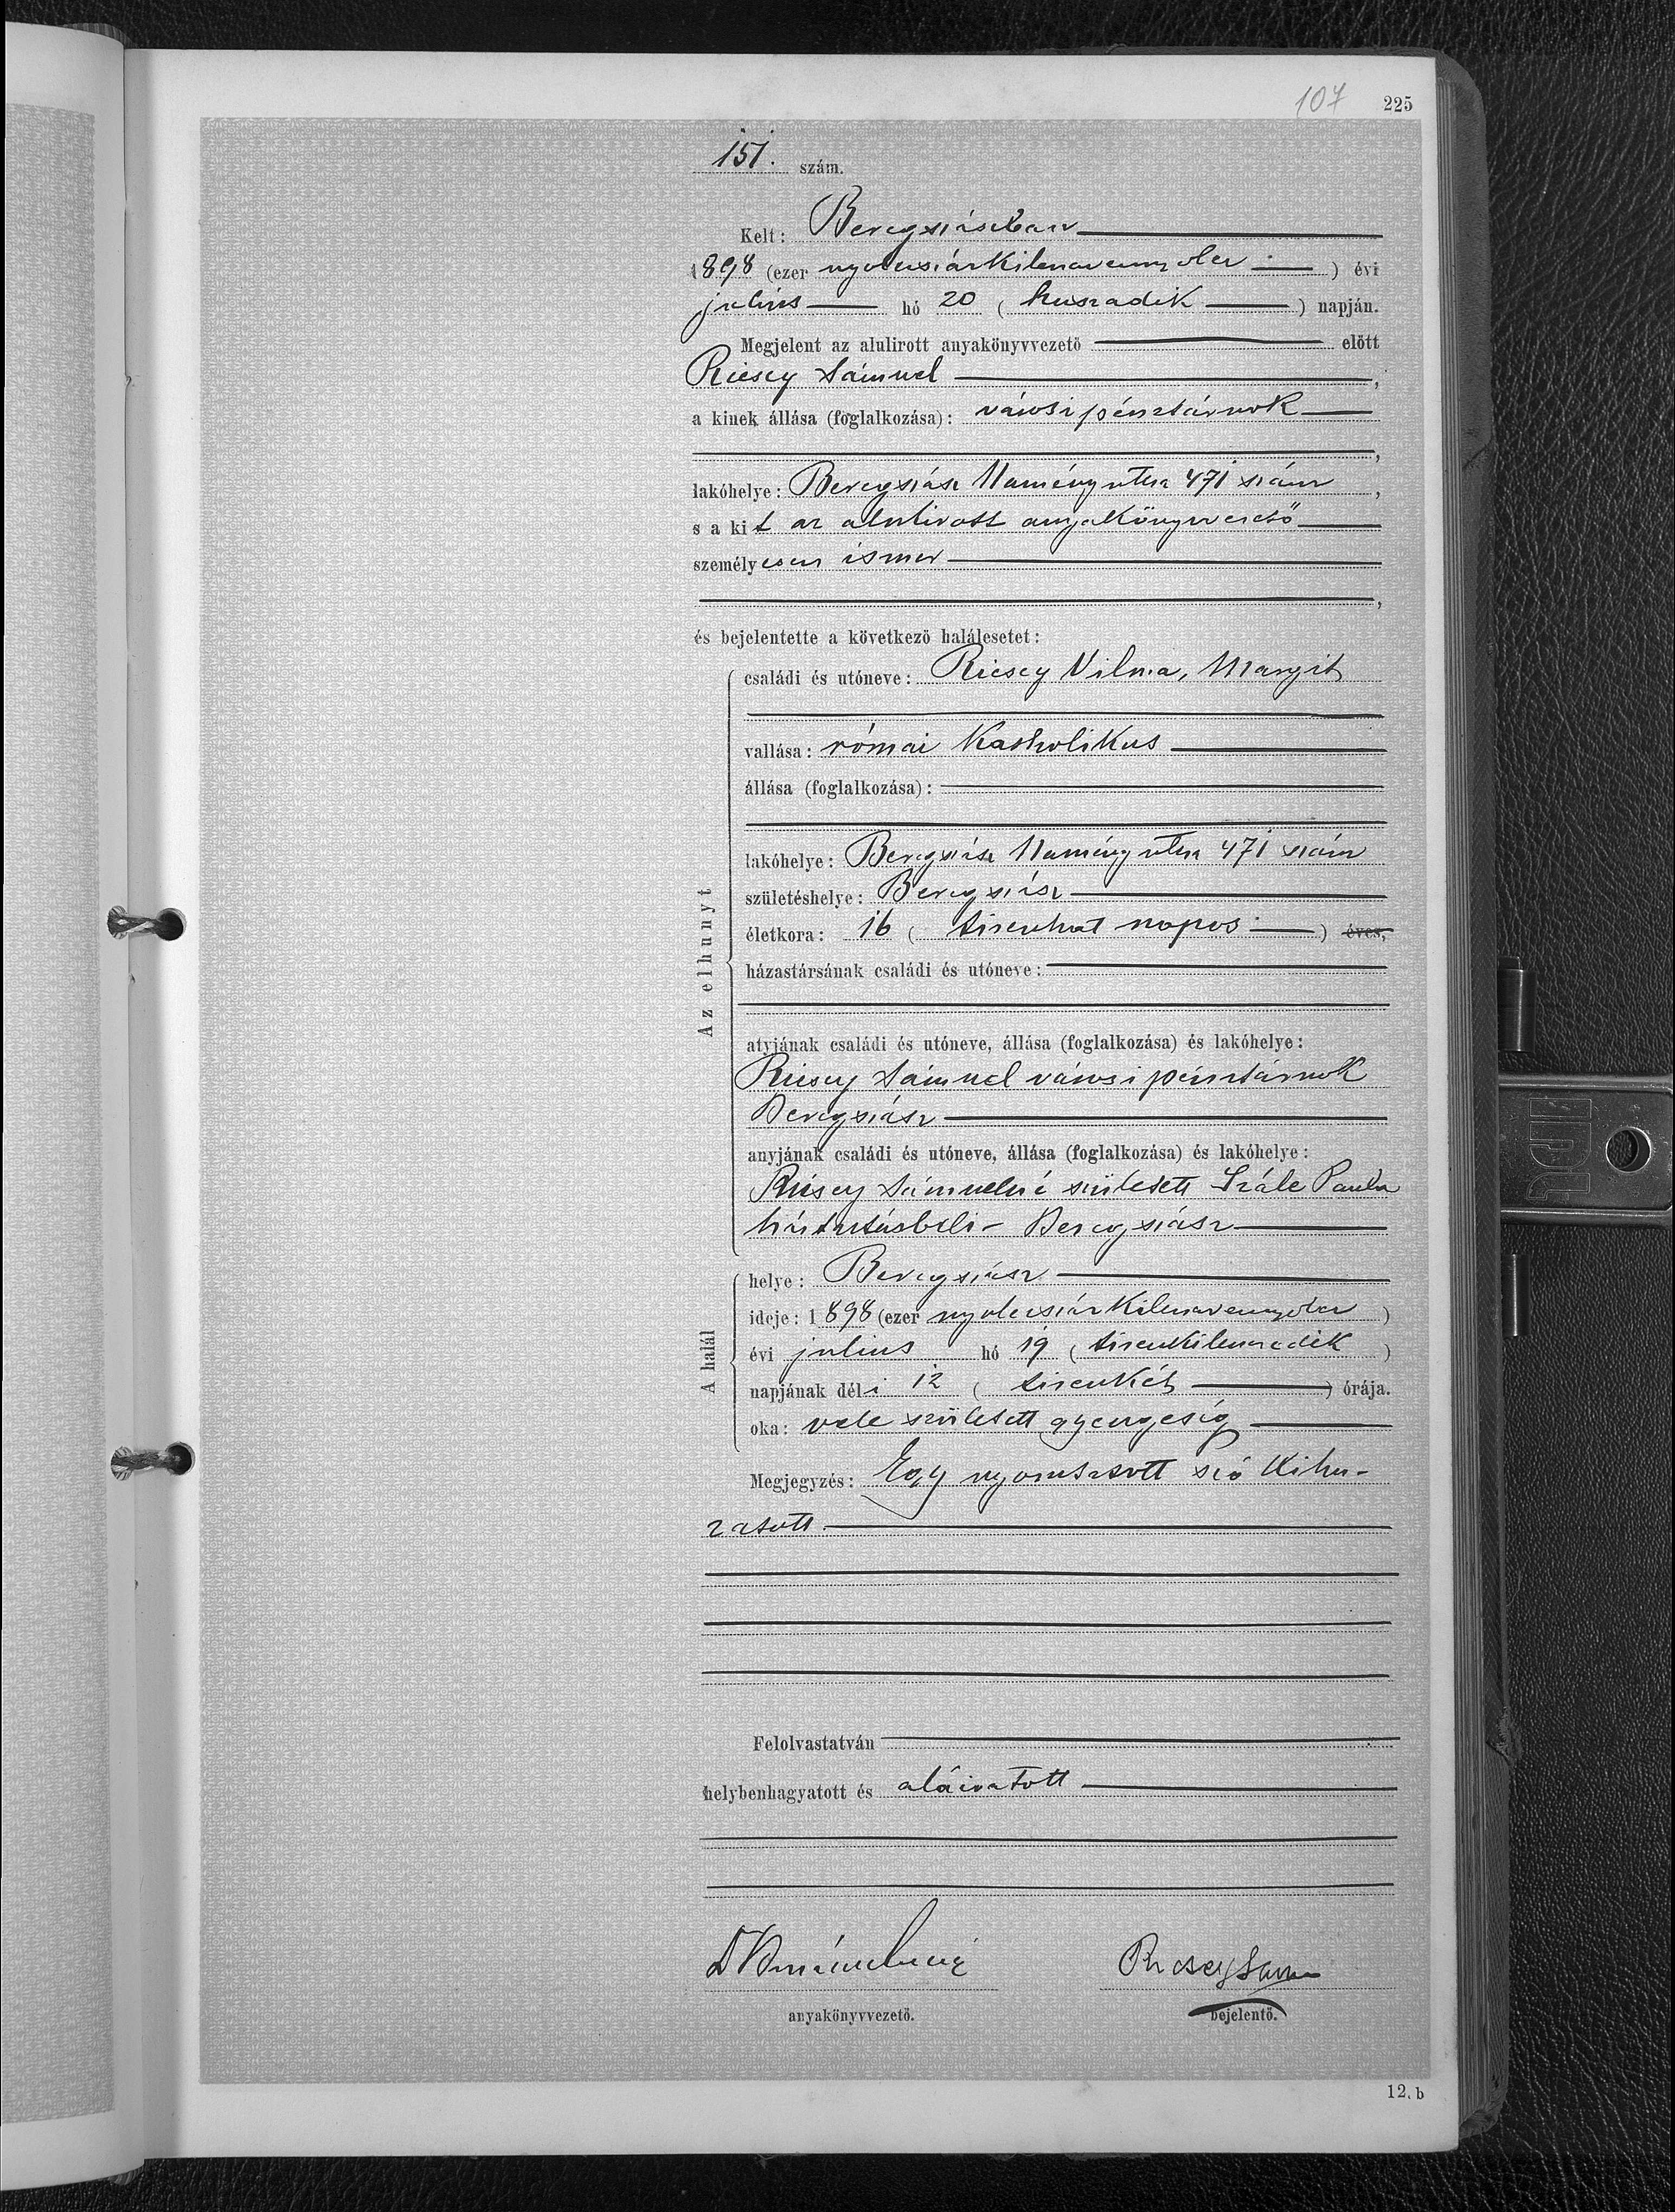 107 225
151. szám.
Kelt: Beregszászban
1898 (ezer nyolcszázkilencvennyolcz) évi
julius hó 20 (huszadik) napján.
Megjelent az alulirott anyakönyvvezető előtt
Ricsey Sámuel,
a kinek állása (foglalkozása): városi pénztárnok
,
lakóhelye: Beregszász Namény utcza 471 szám,
s a kit az alulirott anyakönyvvezető
személyesen ismer
,
és bejelentette a következő halálesetet:
Az elhunyt
családi és utóneve: Ricsey Vilma, Margit
vallása: római katholikus
állása (foglalkozása):
lakóhelye: Beregszász Namény utcza 471 szám
születéshelye: Beregszász
életkora: 16 (tizenhat napos) éves,
házastársának családi és utóneve:
atyjának családi és utóneve, állása (foglalkozása) és lakóhelye:
Ricsey Sámuel városi pénztárnok
Beregszász
anyjának családi és utóneve, állása (foglalkozása) és lakóhelye:
Ricsey Sámuelné született Paula
háztartásbeli - Beregszász
A halál
helye: Beregszász
ideje: 1898 (ezer nyolcszázkilencvennyolcz)
évi julius hó 19 (tizenkilenczedik)
napjának déli 12 (tizenkét) órája.
oka: vele született gyengeség
Megjegyzés: Egy nyomtatott szó kihu-
zatott
Felolvastatván
helybenhagyatott és aláiratott
Ricsey Sam
anyakönyvvezető. bejelentő.
12. b